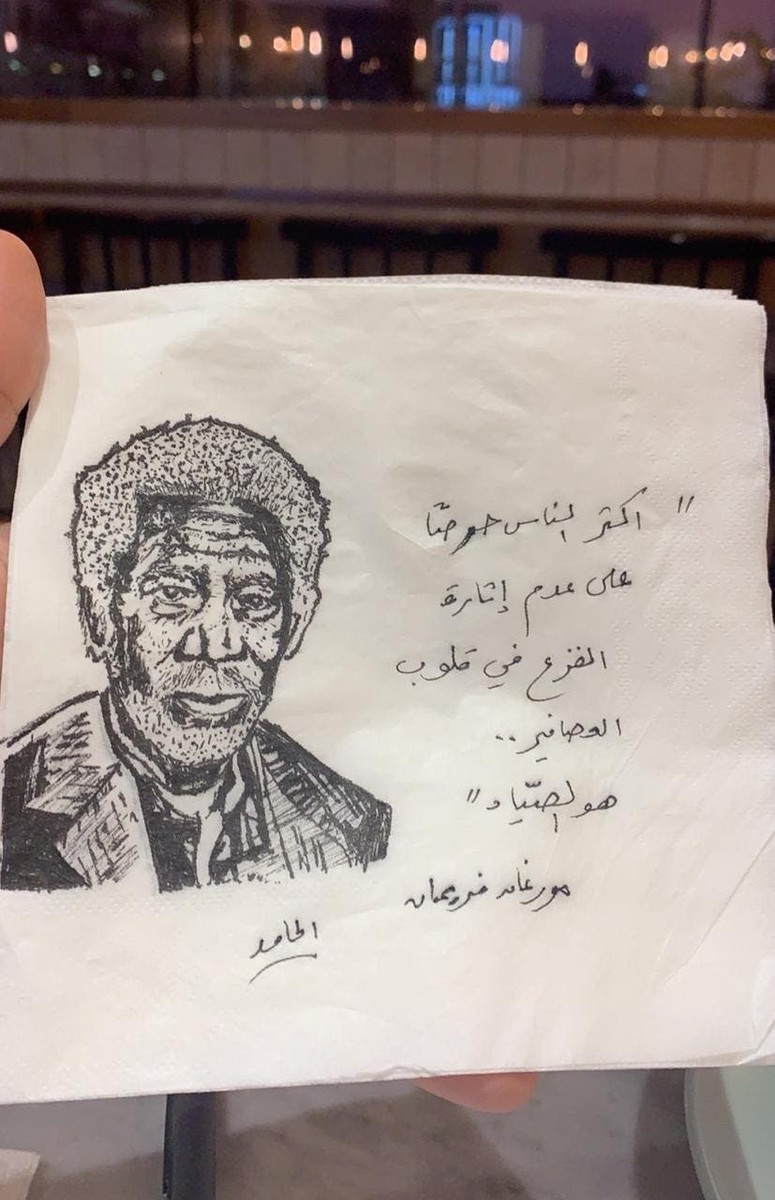 " اكثر الناس حرصًا
على عدم إثارة
الفزع في قلوب
العصافير ..
هو الصيّاد "
مورغان فريمان
الحامد